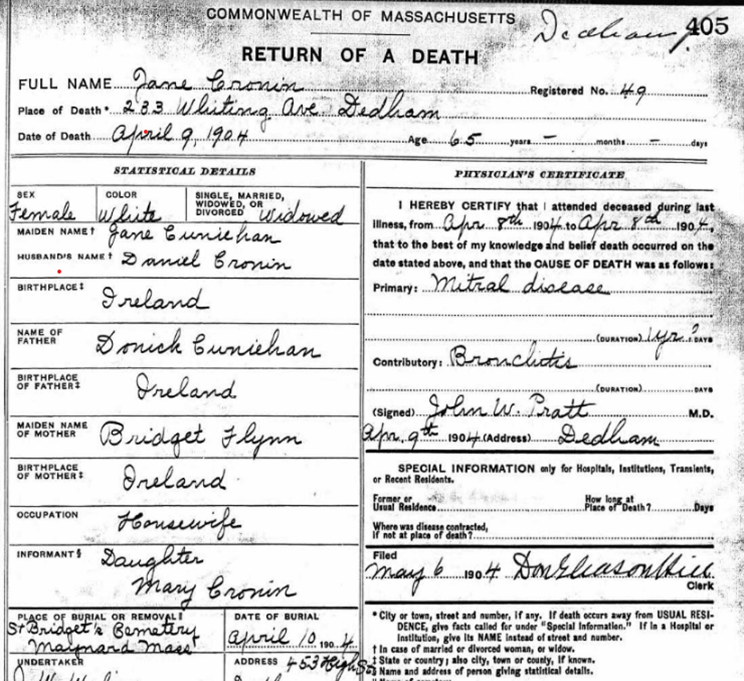 COMMONWEALTH OF MASSACHUSETTS
Dedham 405
RETURN OF A DEATH
FULL NAME Jane Cronin Registered No. 49
Place of Death* 233 Whiting Ave. Dedham
Date of Death April 9, 1904 Age 65 years – months – days
STATISTICAL DETAILS
SEX Female
COLOR White
SINGLE, MARRIED, WIDOWED, OR DIVORCED Widowed
MAIDEN NAME† Jane Cuniehan
HUSBAND'S NAME† Daniel Cronin
BIRTHPLACE‡ Ireland
NAME OF FATHER Donick Cuniehan
BIRTHPLACE OF FATHER‡ Ireland
MAIDEN NAME OF MOTHER Bridget Flynn
BIRTHPLACE OF MOTHER‡ Ireland
OCCUPATION Housewife
INFORMANT§ Daughter
Mary Cronin
PLACE OF BURIAL OR REMOVAL‡
St Bridget's Cemetery
Maynard Mass
DATE OF BURIAL
April 10 1904
UNDERTAKER
ADDRESS 453 High St
PHYSICIAN'S CERTIFICATE
I HEREBY CERTIFY that I attended deceased during last
illness, from Apr 8th 1904 to Apr 8th 1904,
that to the best of my knowledge and belief death occurred on the
date stated above, and that the CAUSE OF DEATH was as follows:
Primary: Mitral disease
(DURATION) 1 yr? DAYS
Contributory: Bronchitis
(DURATION) DAYS
(Signed) John W. Pratt M.D.
Apr. 9th 1904 (Address) Dedham
SPECIAL INFORMATION only for Hospitals, Institutions, Transients,
or Recent Residents.
Former or Usual Residence How long at Place of Death? Days
Where was disease contracted,
If not at place of death?
Filed
May 6 1904 Don Gleason Hill
Clerk
* City or town, street and number, if any. If death occurs away from USUAL RESI-
DENCE, give facts called for under "Special Information." If in a Hospital or
Institution, give its NAME instead of street and number.
† In case of married or divorced woman, or widow.
‡ State or country; also city, town or county, if known.
§ Name and address of person giving statistical details.